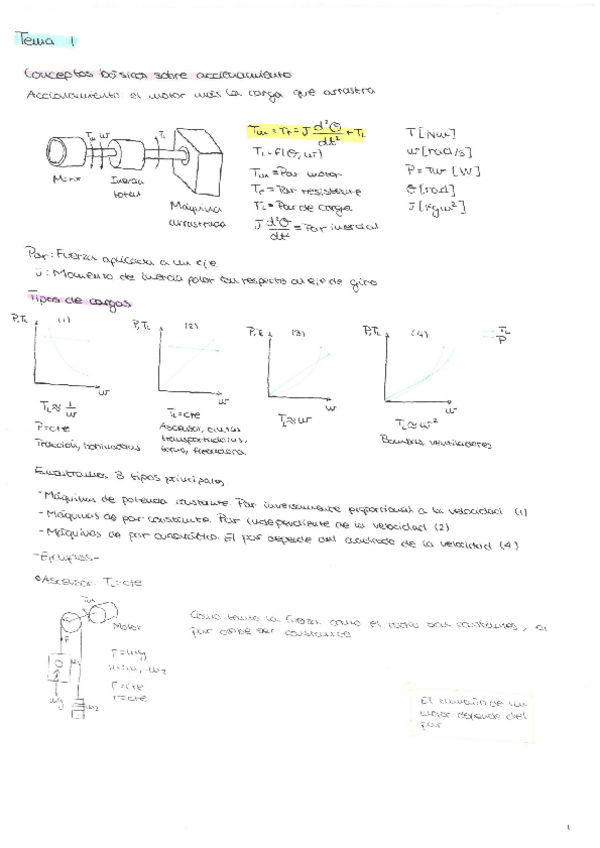 Tema 1
Conceptos básicos sobre accionamiento
Accionamiento el motor más la carga que arrastra
Tm w TL
Motor
Inercia total
Máquina arrastrada
Tm = Tr = J d²θ/dt² + TL
TL = f(θ, w)
Tm = Par motor
Tr = Par resistente
TL = Par de carga
J d²θ/dt² = Par inercial
T [Nm]
w [rad/s]
P = Tw [W]
θ [rad]
J [kgm²]
Par: Fuerza aplicada a un eje
J: Momento de inercia polar con respecto al eje de giro
Tipos de cargas
P,TL (1) w
TL ≈ 1/w
P=cte
Tracción, bobinadoras
P,TL (2) w
TL=cte
Ascensor, cintas transportadoras,
(3) w
TL≈w
P,TL (4) w
TL≈w²
Bombas, ventiladores
TL
P
Encontramos 3 tipos principales
- Máquinas de potencia constante. Par inversamente proporcional a la velocidad (1)
- Máquinas de par constante. Par independiente de la velocidad (2)
- Máquinas de par cuadrático. El par depende del cuadrado de la velocidad (4)
-Ejemplos-
Ascensor. TL=cte
Tm
Motor
F
F=mg
F=cte
T=cte
m2
Como tanto la fuerza como el radio son constantes, el
par debe ser constante
El tamaño de un
motor depende del
par
1